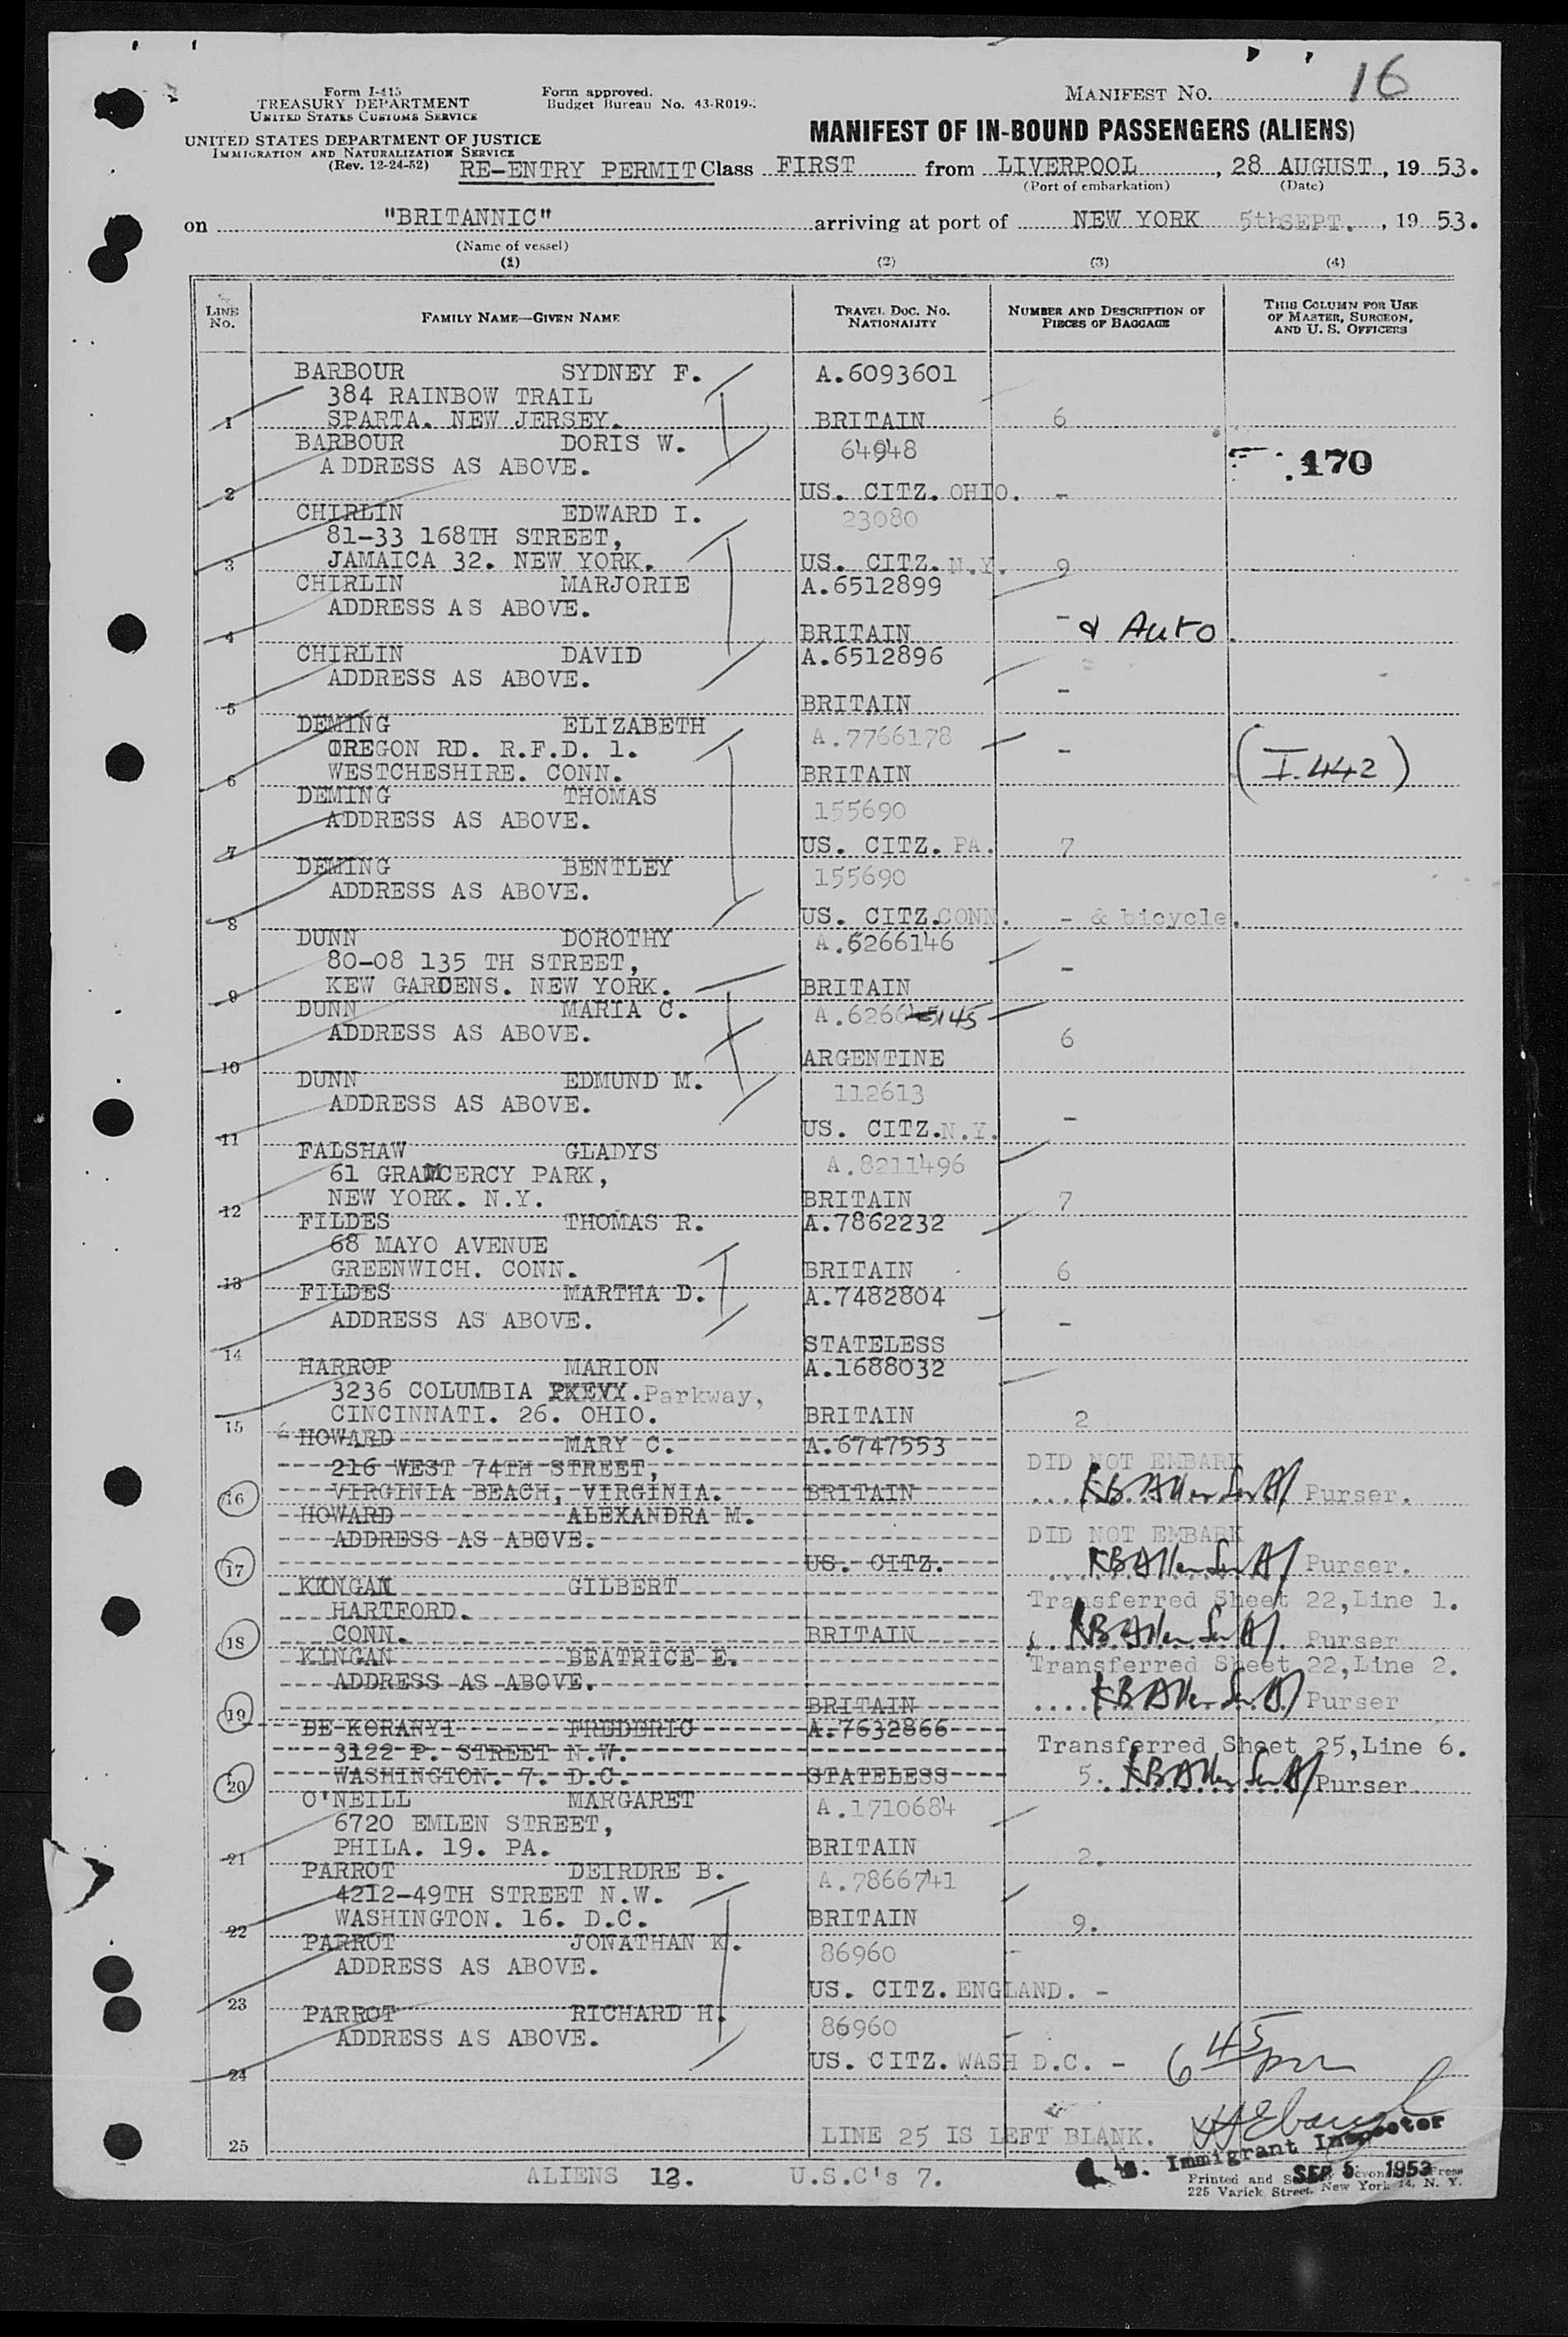 16
Form I-415
TREASURY DEPARTMENT
UNITED STATES CUSTOMS SERVICE
Form approved.
Budget Bureau No. 43-R019-
MANIFEST NO.
UNITED STATES DEPARTMENT OF JUSTICE
IMMIGRATION AND NATURALIZATION SERVICE
(Rev. 12-24-52)
MANIFEST OF IN-BOUND PASSENGERS (ALIENS)
RE-ENTRY PERMIT Class FIRST from LIVERPOOL, 28 AUGUST, 19 53.
(Port of embarkation) (Date)
on "BRITANNIC" arriving at port of NEW YORK 5th SEPT., 19 53.
(Name of vessel)
(1) (2) (3) (4)
LINE No. FAMILY NAME—GIVEN NAME TRAVEL DOC. NO. NATIONALITY NUMBER AND DESCRIPTION OF PIECES OF BAGGAGE THIS COLUMN FOR USE OF MASTER, SURGEON, AND U. S. OFFICERS
BARBOUR SYDNEY F. A.6093601
384 RAINBOW TRAIL
1 SPARTA. NEW JERSEY. BRITAIN 6
BARBOUR DORIS W. 64948
ADDRESS AS ABOVE. 170
2 US. CITZ. OHIO. -
CHIRLIN EDWARD I. 23080
81-33 168TH STREET,
3 JAMAICA 32. NEW YORK. US. CITZ. N.Y. 9
CHIRLIN MARJORIE A.6512899
ADDRESS AS ABOVE.
4 BRITAIN - & Auto.
CHIRLIN DAVID A.6512896
ADDRESS AS ABOVE.
5 BRITAIN -
DEMING ELIZABETH A.7766178
OREGON RD. R.F.D. 1. -
6 WESTCHESHIRE. CONN. BRITAIN (I.442)
DEMING THOMAS 155690
ADDRESS AS ABOVE.
7 US. CITZ. PA. 7
DEMING BENTLEY 155690
ADDRESS AS ABOVE.
8 US. CITZ. CONN. - & bicycle.
DUNN DOROTHY A.6266146
80-08 135 TH STREET, -
9 KEW GARDENS. NEW YORK. BRITAIN
DUNN MARIA C. A.6266145
ADDRESS AS ABOVE. 6
10 ARGENTINE
DUNN EDMUND M. 112613
ADDRESS AS ABOVE.
11 US. CITZ. N.Y. -
FALSHAW GLADYS A.8211496
61 GRAMCERCY PARK,
12 NEW YORK. N.Y. BRITAIN 7
FILDES THOMAS R. A.7862232
68 MAYO AVENUE
13 GREENWICH. CONN. BRITAIN 6
FILDES MARTHA D. A.7482804
ADDRESS AS ABOVE. -
14 STATELESS
HARROP MARION A.1688032
3236 COLUMBIA PKEVY. Parkway,
15 CINCINNATI. 26. OHIO. BRITAIN 2
HOWARD MARY C. A.6747553
216 WEST 74TH STREET, DID NOT EMBARK
16 VIRGINIA BEACH, VIRGINIA. BRITAIN Purser.
HOWARD ALEXANDRA M.
ADDRESS AS ABOVE. DID NOT EMBARK
17 US. CITZ. Purser.
KINGAN GILBERT Transferred Sheet 22, Line 1.
HARTFORD.
18 CONN. BRITAIN Purser
KINGAN BEATRICE E. Transferred Sheet 22, Line 2.
ADDRESS AS ABOVE.
19 BRITAIN Purser
DE KORANYI FREDERIC A.7632866
3122 P. STREET N.W. Transferred Sheet 25, Line 6.
20 WASHINGTON. 7. D.C. STATELESS 5. Purser
O'NEILL MARGARET A.1710684
6720 EMLEN STREET,
21 PHILA. 19. PA. BRITAIN 2.
PARROT DEIRDRE B. A.7866741
4212-49TH STREET N.W.
22 WASHINGTON. 16. D.C. BRITAIN 9.
PARROT JONATHAN K. 86960
ADDRESS AS ABOVE.
23 US. CITZ. ENGLAND. -
PARROT RICHARD H. 86960
ADDRESS AS ABOVE.
24 US. CITZ. WASH D.C. - 6 45 pm
25 LINE 25 IS LEFT BLANK.
Immigrant Inspector
ALIENS 12. U.S.C's 7.
SEP 5 1953
Printed and
225 Varick Street, New York 14, N. Y.